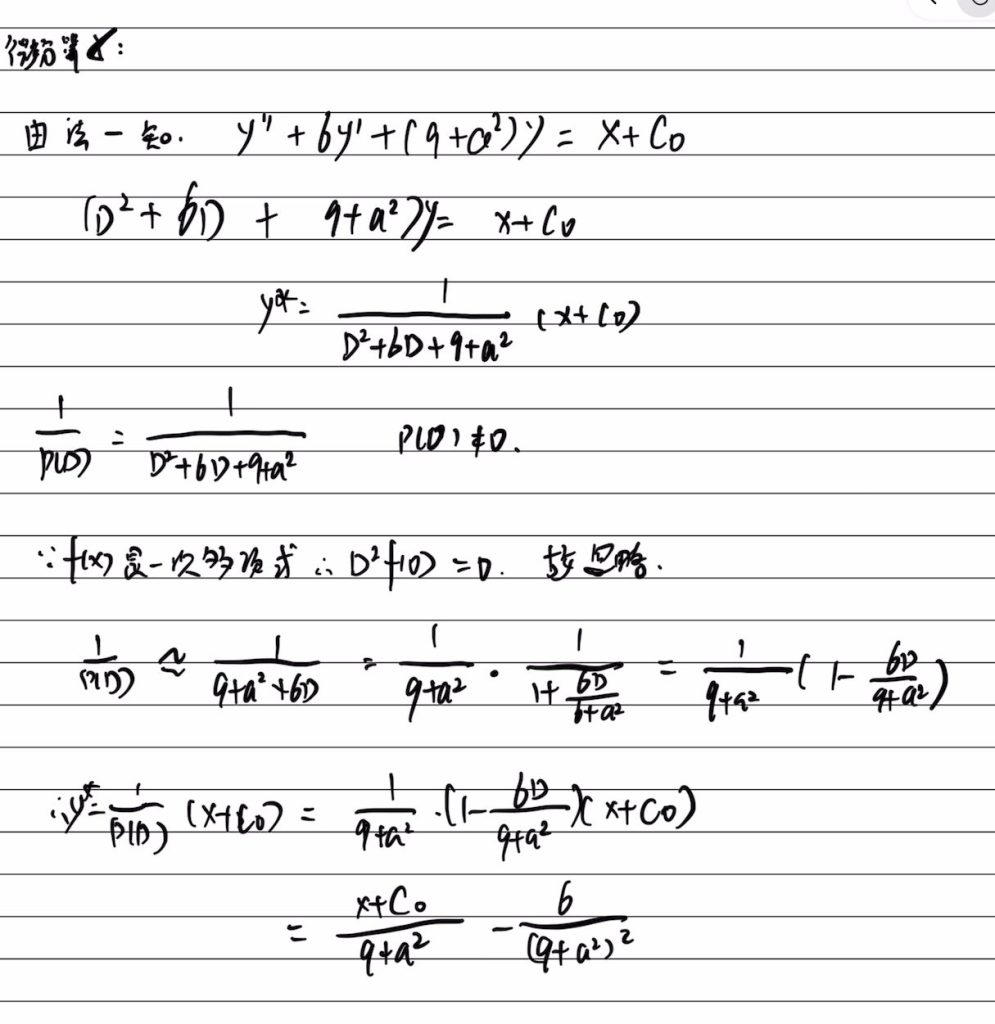 微分算子:
由法一知. y'' + 6y' + (9+a²)y = x+C₀
(D² + 6D + 9+a²)y = x+C₀
y* = \frac{1}{D²+6D+9+a²} (x+C₀)
\frac{1}{P(D)} = \frac{1}{D²+6D+9+a²} P(0)≠0.
∵f(x)是一次多项式 ∴ D²f(0) = 0. 故忽略.
\frac{1}{P(D)} ≈ \frac{1}{9+a²+6D} = \frac{1}{9+a²} · \frac{1}{1+\frac{6D}{6+a²}} = \frac{1}{9+a²}(1-\frac{6D}{9+a²})
∴y*=\frac{1}{P(D)} (x+C₀) = \frac{1}{9+a²}·(1-\frac{6D}{9+a²})(x+C₀)
= \frac{x+C₀}{9+a²} - \frac{6}{(9+a²)²}